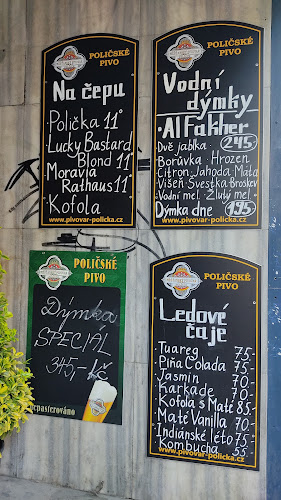 POLIČSKÉ
PIVO
Na čepu
Polička 11°
Lucky Bastard
Blond 11°
Moravia
Rathaus 11°
Kofola
www.pivovar-policka.cz
POLIČSKÉ
PIVO
Vodní
dýmky
Al Fakher
Dvě jablka 245
Borůvka Hrozen
Citron Jahoda Máta
Višeň Švestka Broskev
Vodní mel. Žlutý mel.
Dýmka dne 195
www.pivovar-policka.cz
POLIČSKÉ
PIVO
Dýmka
SPECIÁL
345,-Kč
POLIČSKÉ
PIVO
Ledové
čaje
Tuareg 75-
Piña Colada 75-
Jasmín 70-
Karkade 70-
Kofola s Maté 85-
Maté Vanilla 70-
Indiánské léto 75-
Kombucha 55-
www.pivovar-policka.cz